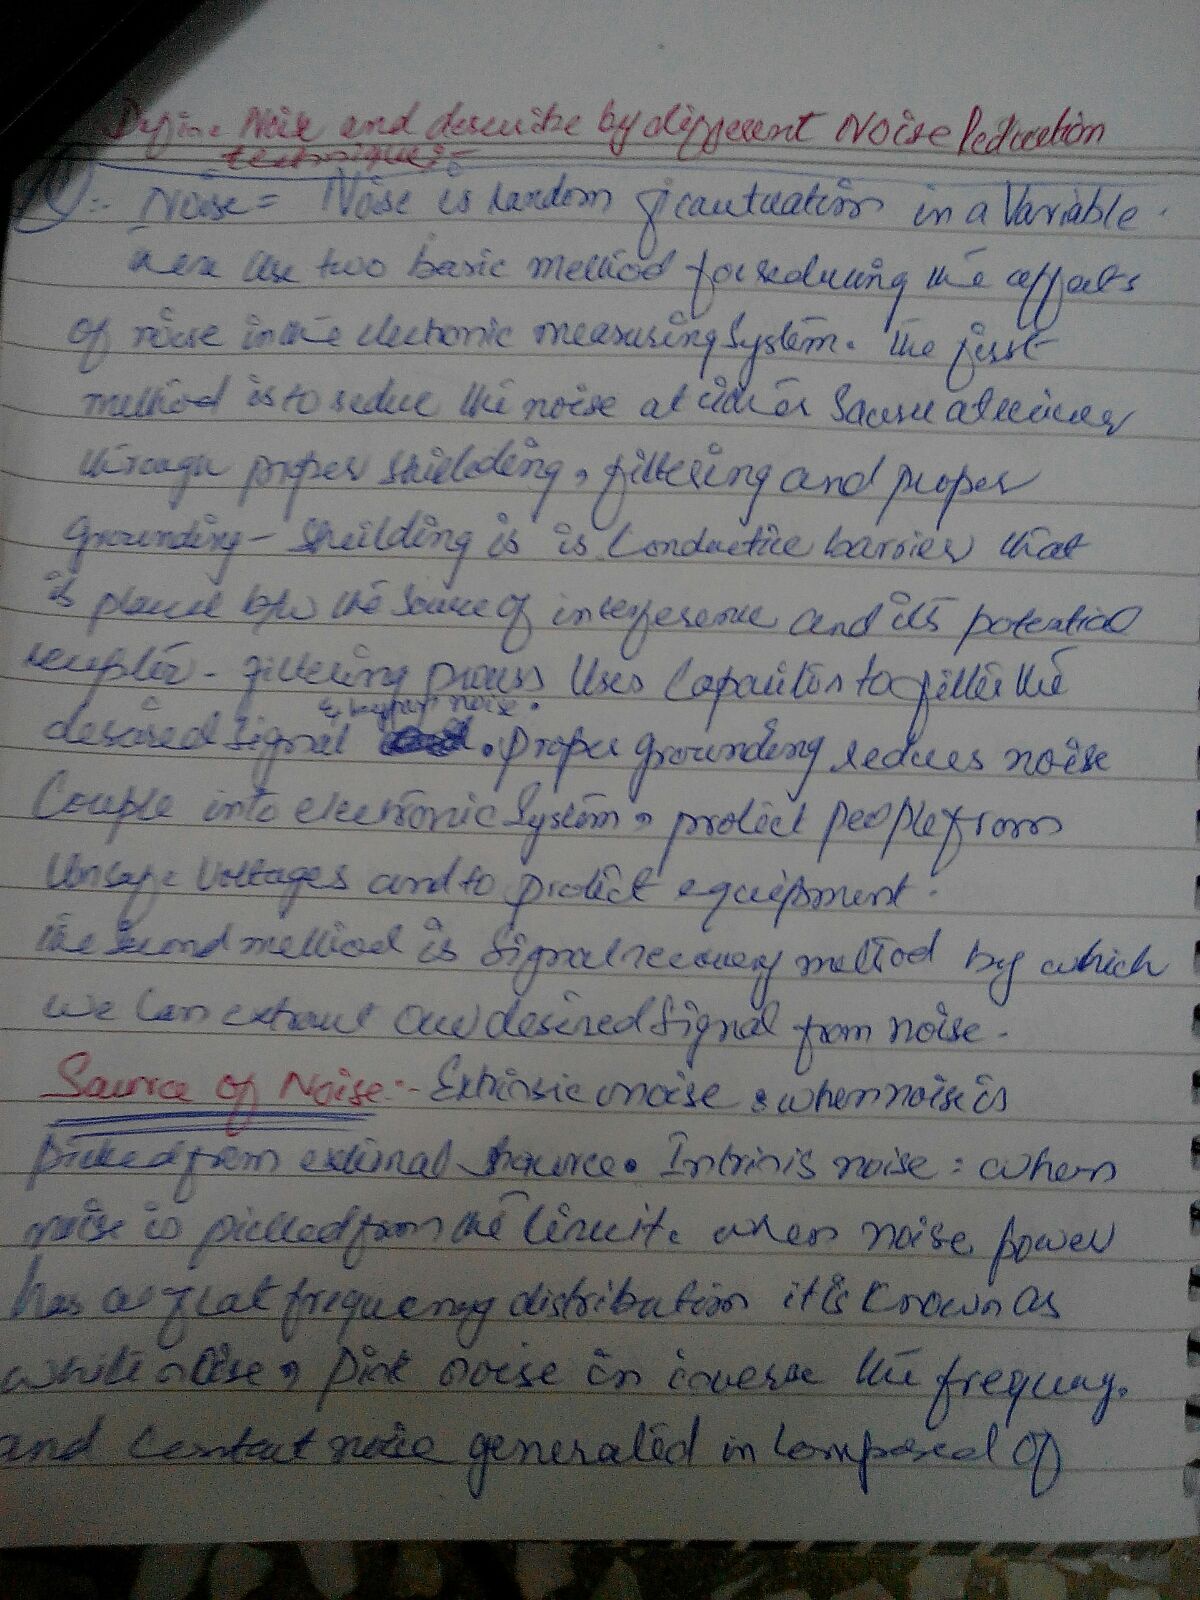 Define Noise and describe by different Noise Reduction
technique:-
:- Noise = Noise is random in a Variable.
are two basic method for reducing the effects
of noise in the electronic measuring System. the first
method is to reduce the noise at
through proper shielding, filtering and proper
Grounding - Sheilding is is Conductice barrier that
is placed b/w the source of interference and its potential
receptor - filtering process Uses Capacitor to filter the
desired Signal & bypass noise. . Proper grounding reduces noise
Couple into electronic System, protect people from
Unsafe Voltages and to protect equipment.
the second method is Signal recovery method by which
we Can extract our desired Signal from noise.
Source of Noise:- Extrinsic noise : when noise is
picked from external source. Intrinis noise : when
noise is picked from the Circuit. when noise power
has a flat frequency distribution it is known as
white noise, pink noise in inverse the frequency.
and Contact noise generated in Composed of